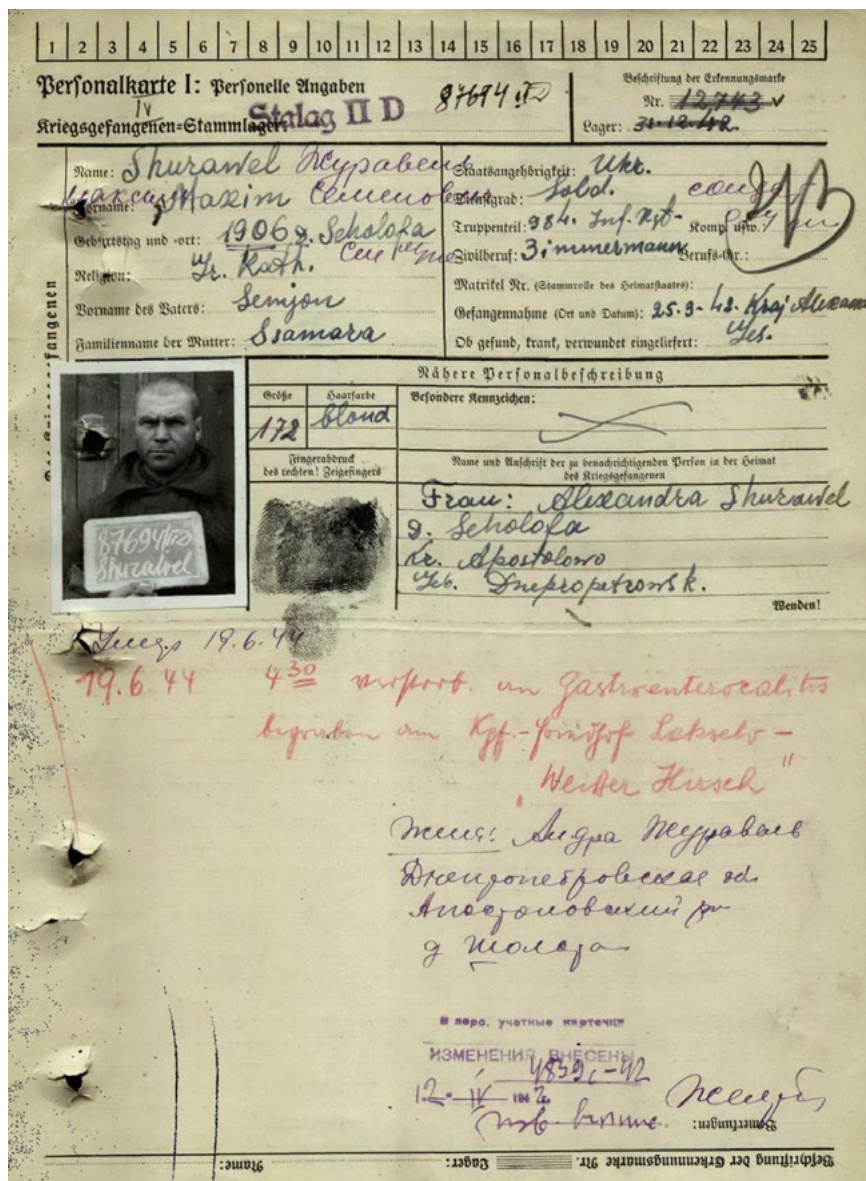 1 2 3 4 5 6 7 8 9 10 11 12 13 14 15 16 17 18 19 20 21 22 23 24 25
Personalkarte I: Personelle Angaben
Kriegsgefangenen=Stammlager: Stalag II D
87694 IID
Beschriftung der Erkennungsmarke
Nr. 12743
Lager: 31.12.42.
Name: Shurawel Журавель
Vorname: Maxim Максим Семенович
Geburtstag und -ort: 1906 g. Scholofa
Religion: Gr. Kath.
Vorname des Vaters: Semjon
Familienname der Mutter: Ssamara
Staatsangehörigkeit: Ukr.
Dienstgrad: Sold. солдат
Truppenteil: 984. Inf. Rgt. Komp. usw.:
Zivilberuf: Zimmermann Berufs-Gr.:
Matrikel Nr. (Stammrolle des Heimatstaates):
Gefangennahme (Ort und Datum): 25.3-42. Kraj Alexan
Ob gesund, krank, verwundet eingeliefert: Ges.
Nähere Personalbeschreibung
Größe Haarfarbe Besondere Kennzeichen:
172 blond
Fingerabdruck
des rechten! Zeigefingers
Name und Anschrift der zu benachrichtigenden Person in der Heimat
des Kriegsgefangenen
Frau: Alexandra Shurawel
g. Scholofa
Kr. Apostolowo
Geb. Dnepropetrowsk.
Wenden!
87694/IID
Shurawel
19.6.44
19.6.44 4 30 verstorb. an Gastroenterocolitis
begraben am Kgf.-Friedhof Lakselv -
"Weißer Hirsch"
жена: Андра Журавель
Днепропетровская обл
Апостоловский рн
д Шолофа
В перс. учетные карточки
ИЗМЕНЕНИЯ ВНЕСЕНЫ
12 IV
Bemerkungen:
Beschriftung der Erkennungsmarke Nr. Lager: Name: